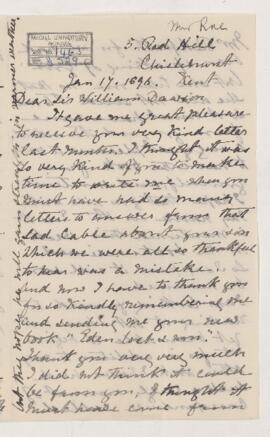 Mrs Roe
McGILL UNIVERSITY
ARCHIVES
ACC. NO. 1463
REF.
5. Red Hill
Chislehurst
Jan 17. 1896. Kent
Dear Sir William Dawson
It gave me great pleasure
to receive your very kind letter
last month. I thought it was
so very kind of you to make
time to write me when you
must have had so many
letters to answer from that
sad Cable about your son
which we were all so thankful
to hear was a mistake.
And now I have to thank you
for so kindly remembering me
and sending me your new
book "Eden lost & won".
Thank you very very much
I did not think it could
be from you, I thought it
must have come from